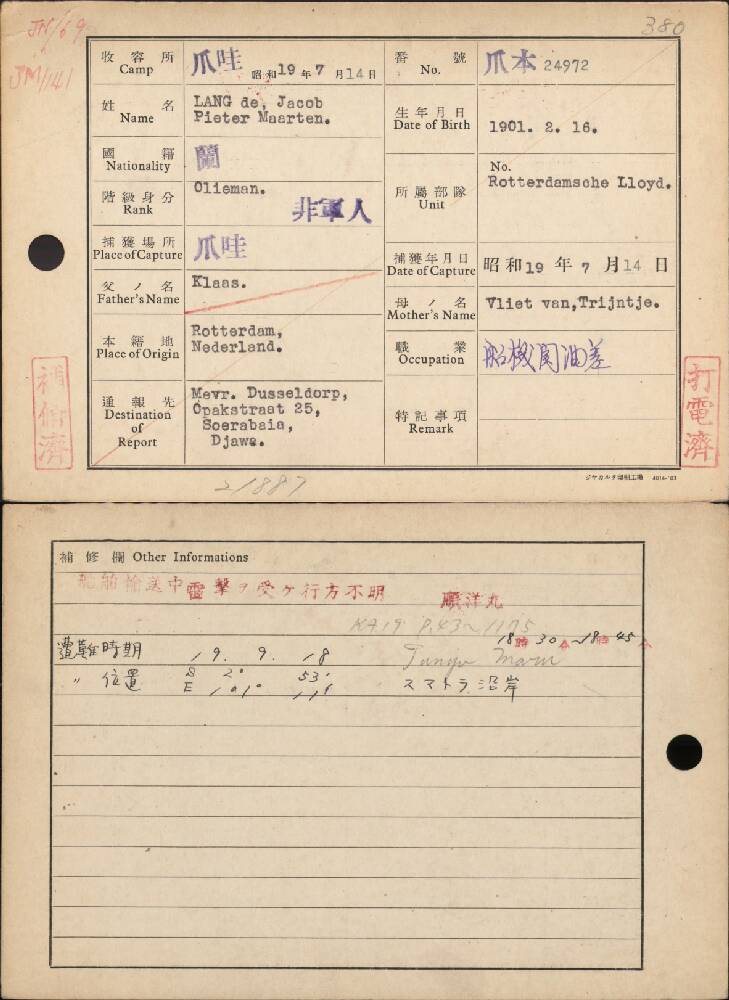 380
JM/141
收容所 Camp 爪哇 昭和19年7月14日
番號 No. 爪本 24972
姓名 Name LANG de, Jacob
Pieter Maarten.
生年月日 Date of Birth 1901. 2. 16.
國籍 Nationality 蘭
階級身分 Rank Olieman.
非軍人
所屬部隊 Unit No.
Rotterdamsche Lloyd.
捕獲場所 Place of Capture 爪哇
捕獲年月日 Date of Capture 昭和19年7月14日
父ノ名 Father's Name Klaas.
母ノ名 Mother's Name Vliet van, Trijntje.
本籍地 Place of Origin Rotterdam,
Nederland.
職業 Occupation 船機関油差
通報先 Destination of Report Mevr. Dusseldorp,
Opakstraat 25,
Soerabaia,
Djawa.
特記事項 Remark
打電濟
21887
ジヤカルタ印刷工場
補修欄 Other Informations
船舶輸送中雷擊ヲ受ケ行方不明 順洋丸
18時30分~18時45分
遭難時期 19. 9. 18 Junyo Maru
〃 位置 S 2° 53′ スマトラ沿岸
E 101° 11′